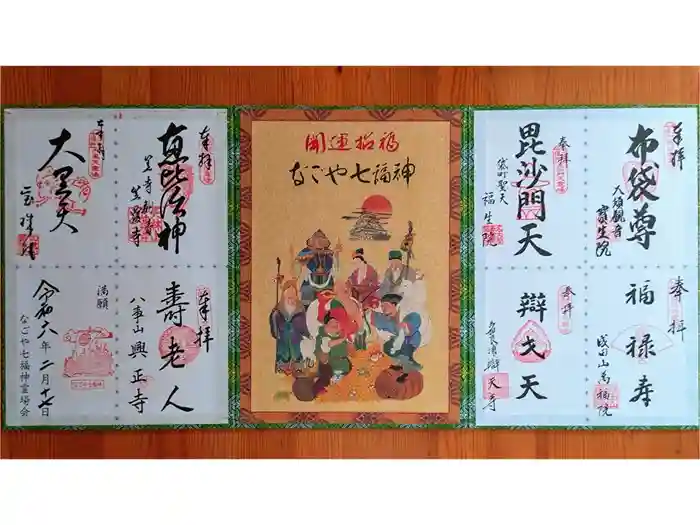 開運招福
なごや七福神
奉拝
布袋尊
大須観音
寳生院
奉拝
毘沙門天
袋町聖天
福生院
奉拝
福禄寿
成田山萬福院
奉拝
辯才天
天寺
奉拝
恵比須神
笠寺観音
笠覆寺
奉拝
大黒天
宝珠院
奉拝
寿老人
八事山興正寺
満願
令和六年二月十七日
なごや七福神霊場会